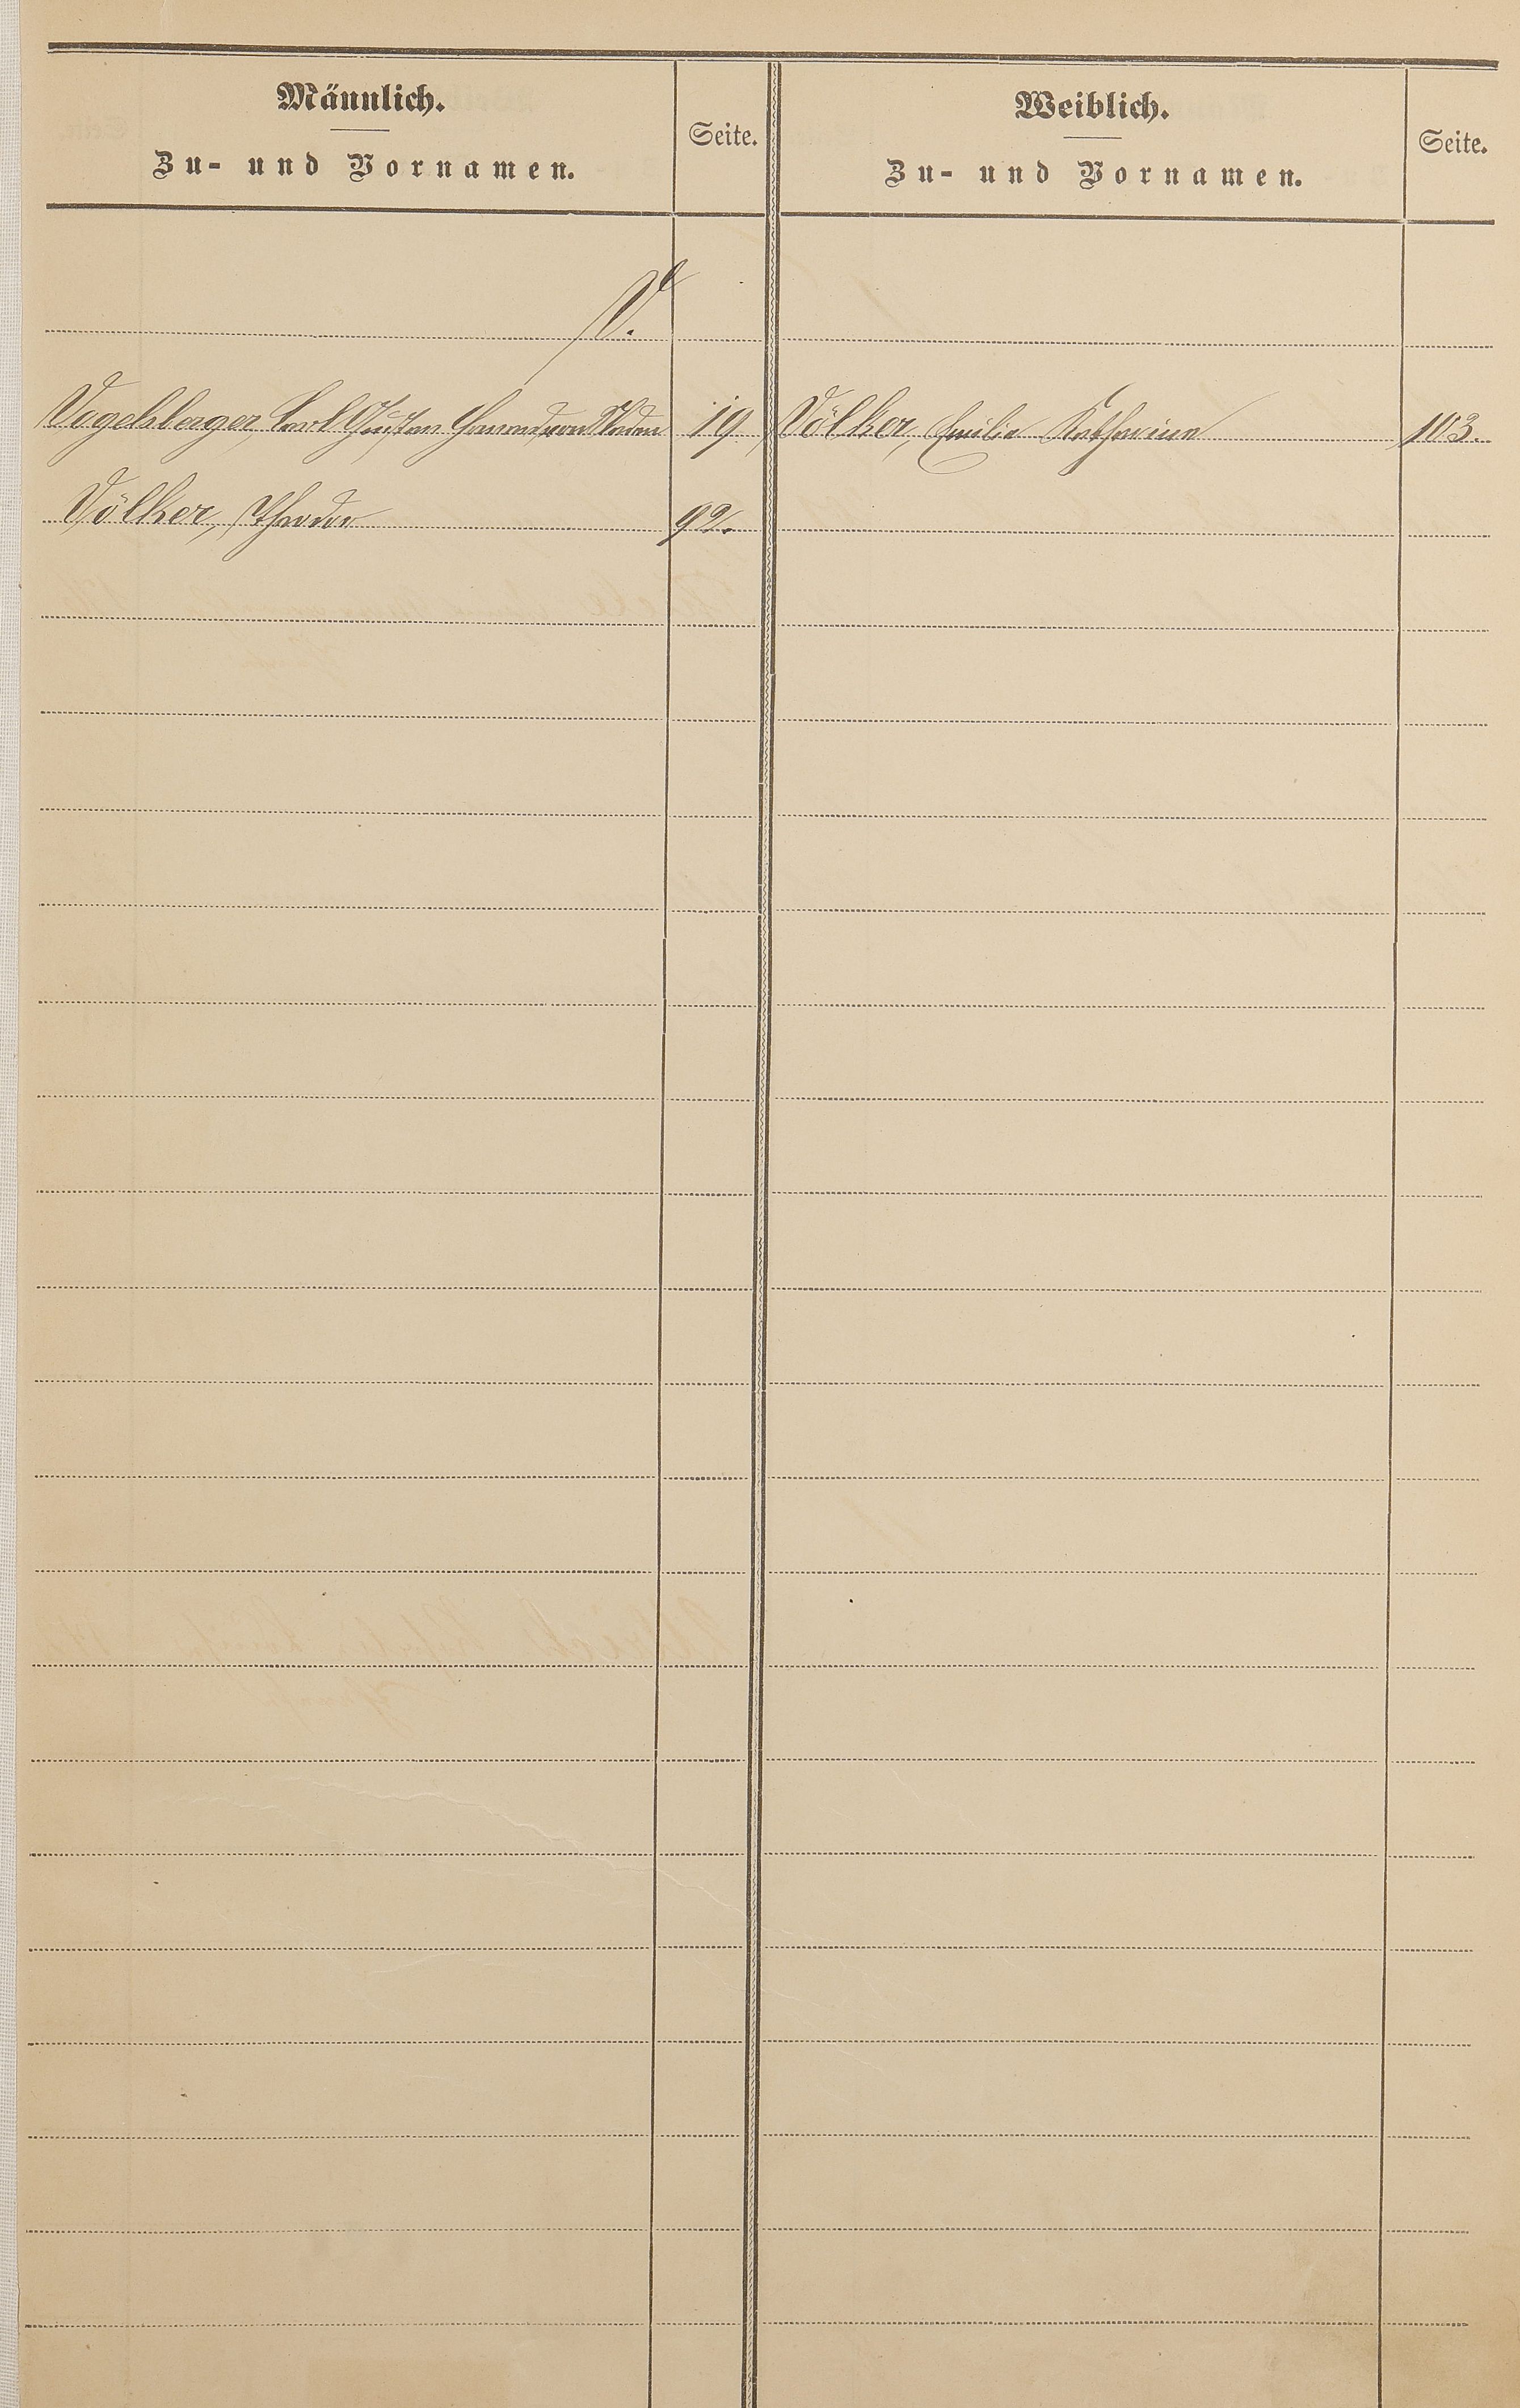 Männlich.
Zu- und Vornamen.
Seite.
Weiblich.
Zu- und Vornamen.
Seite.
V.
Vogelsberger Carl Gustav 19
Völker, Emilie Katharina 103.
Völker, Theodor 92.